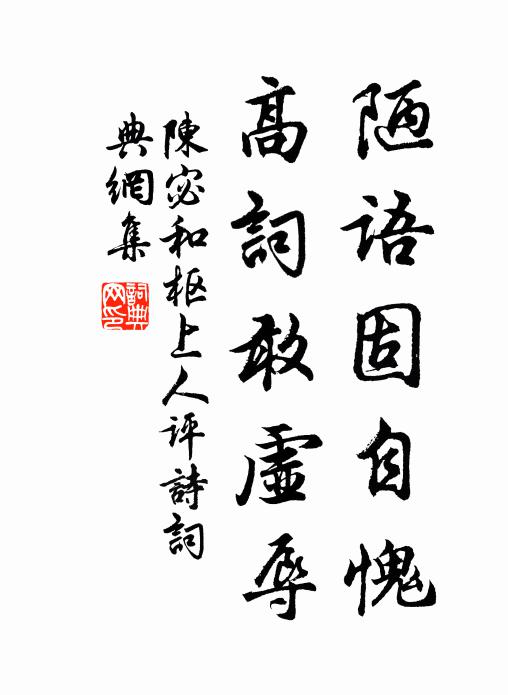 陋语固自愧
高詞敢虚辱
陳宓和枢上人评詩詞
典網集
詞典網印